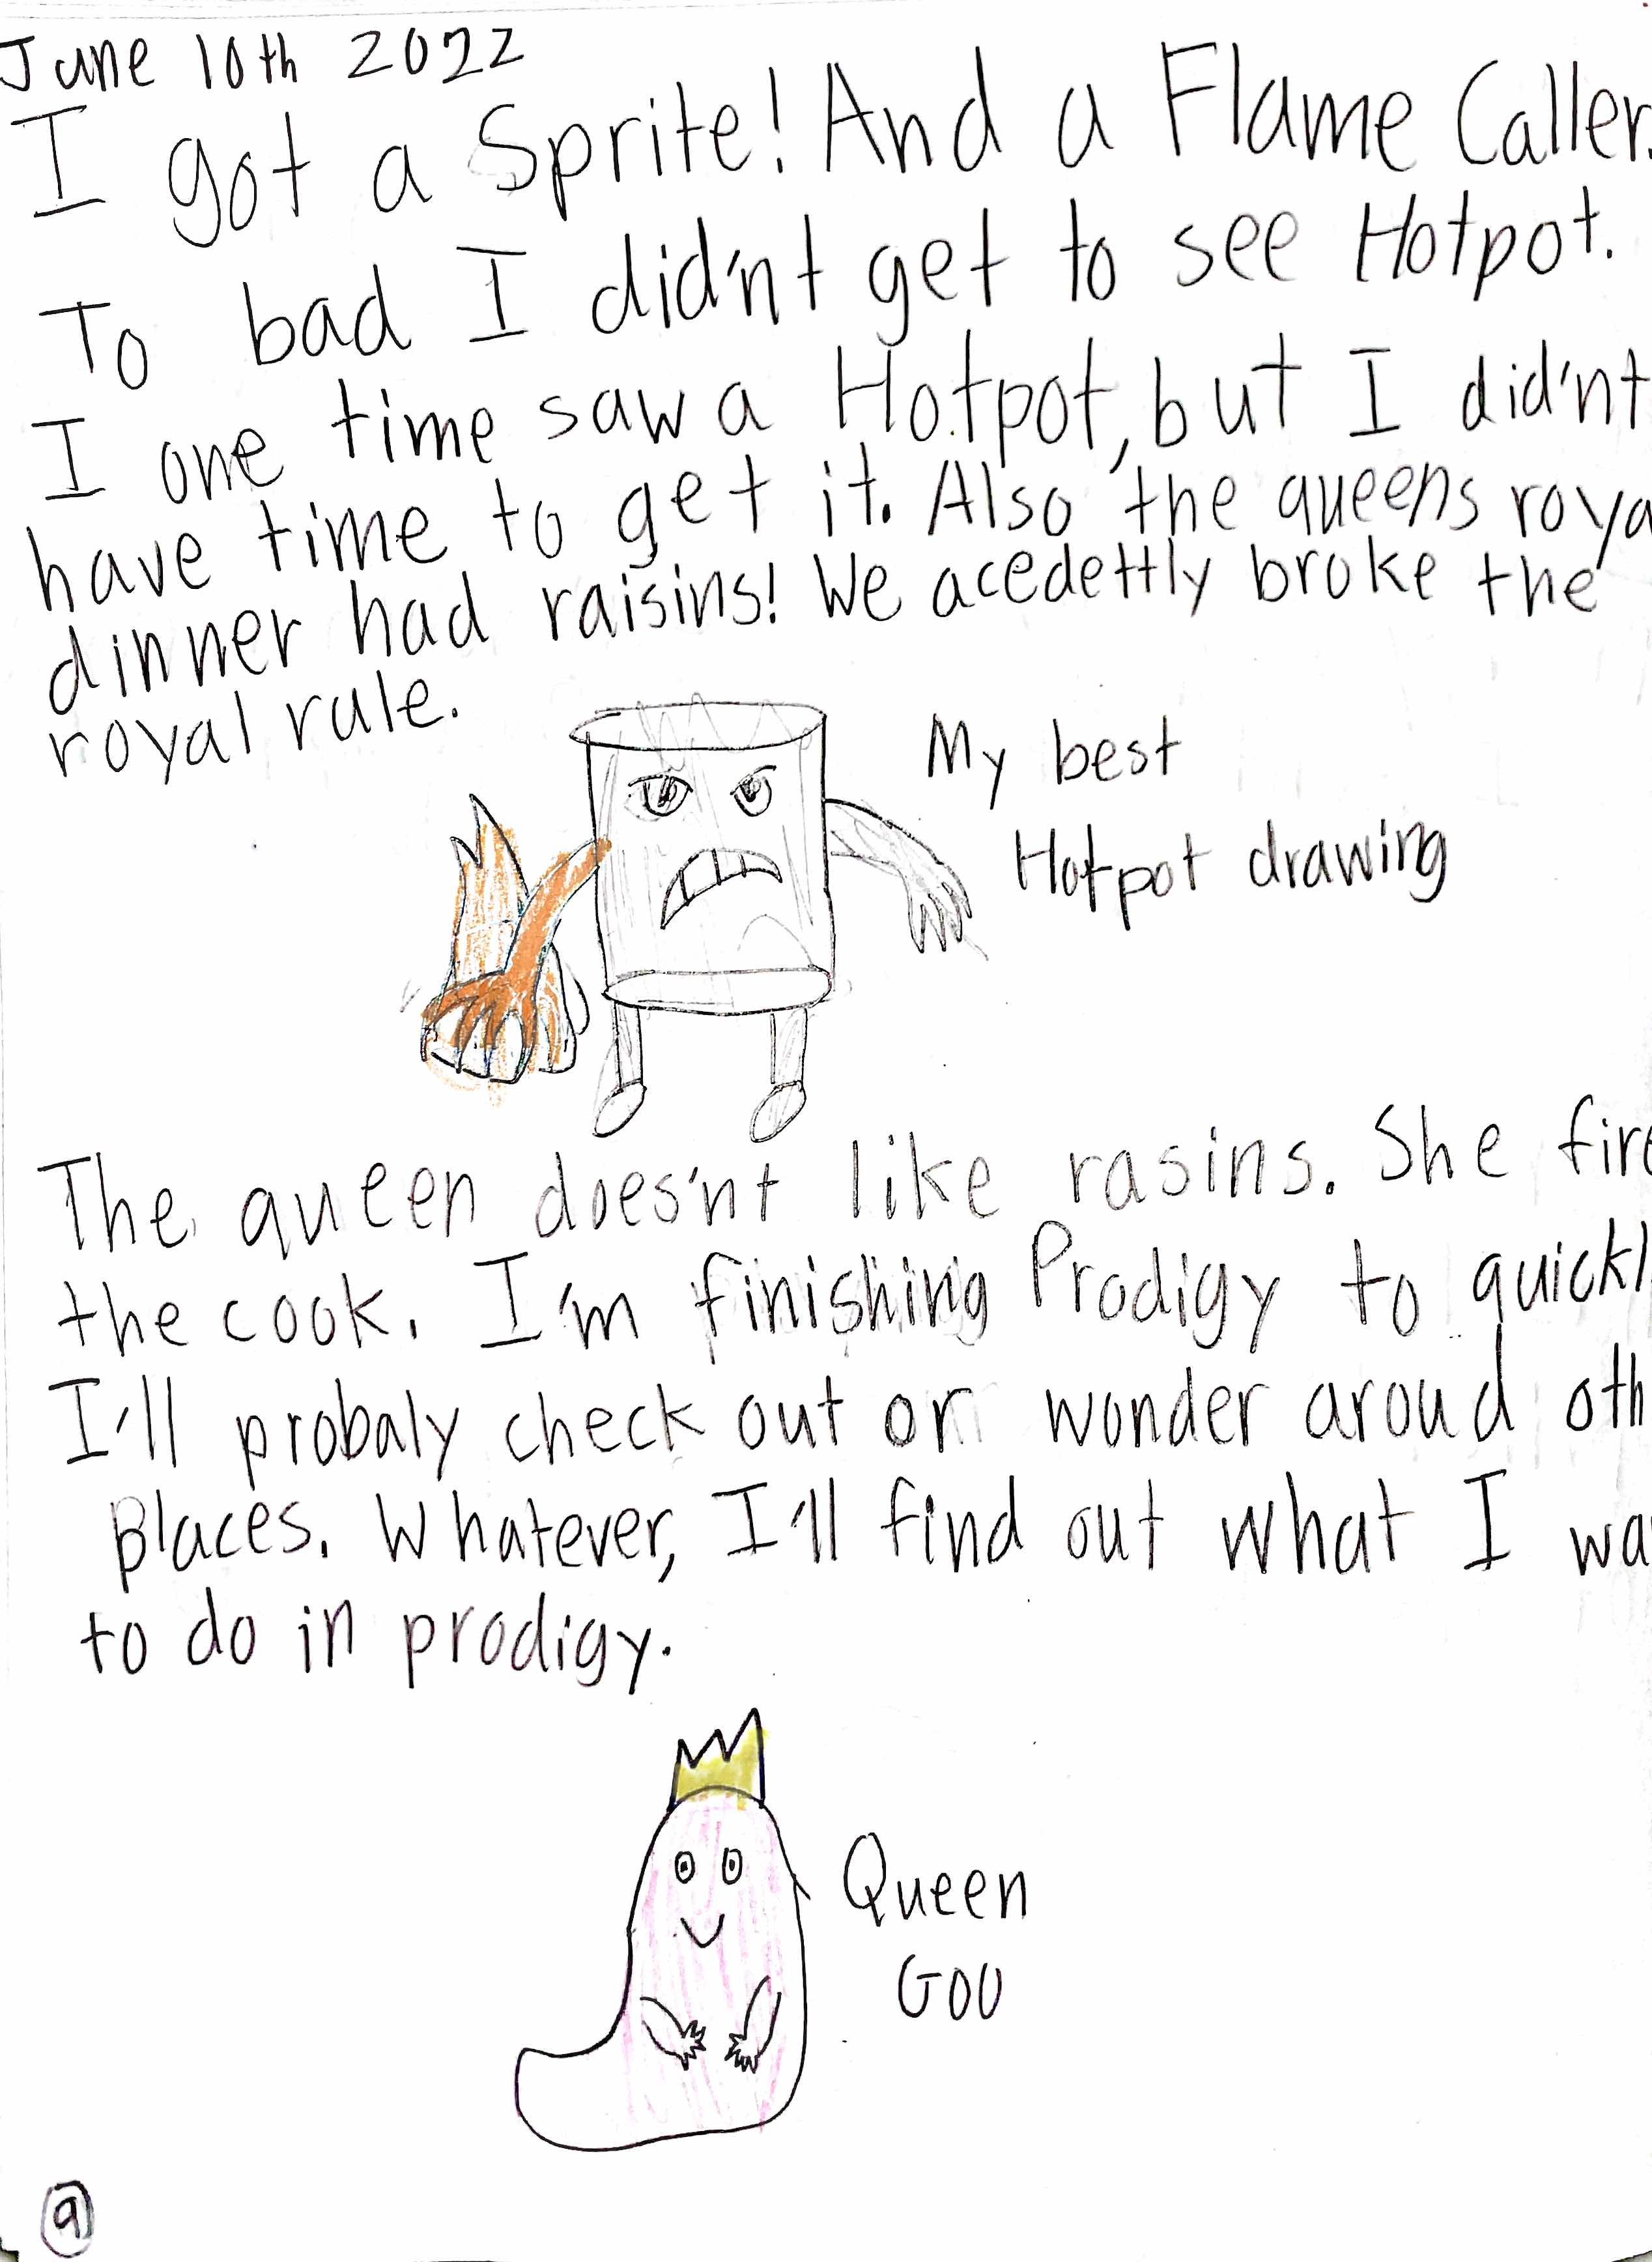 June 10th 2022
I got a Sprite! And a Flame Caller.
To bad I did'nt get to see Hotpot.
I one time saw a Hotpot, but I did'nt
have time to get it. Also the queens roya
dinner had raisins! We acedettly broke the
royal rule.
My best
Hotpot drawing
The queen does'nt like rasins. She fire
the cook. I'm finishing Prodigy to quickl
I'll probaly check out or wonder aroud oth
places. Whatever, I'll find out what I wa
to do in prodigy.
Queen
Goo
9